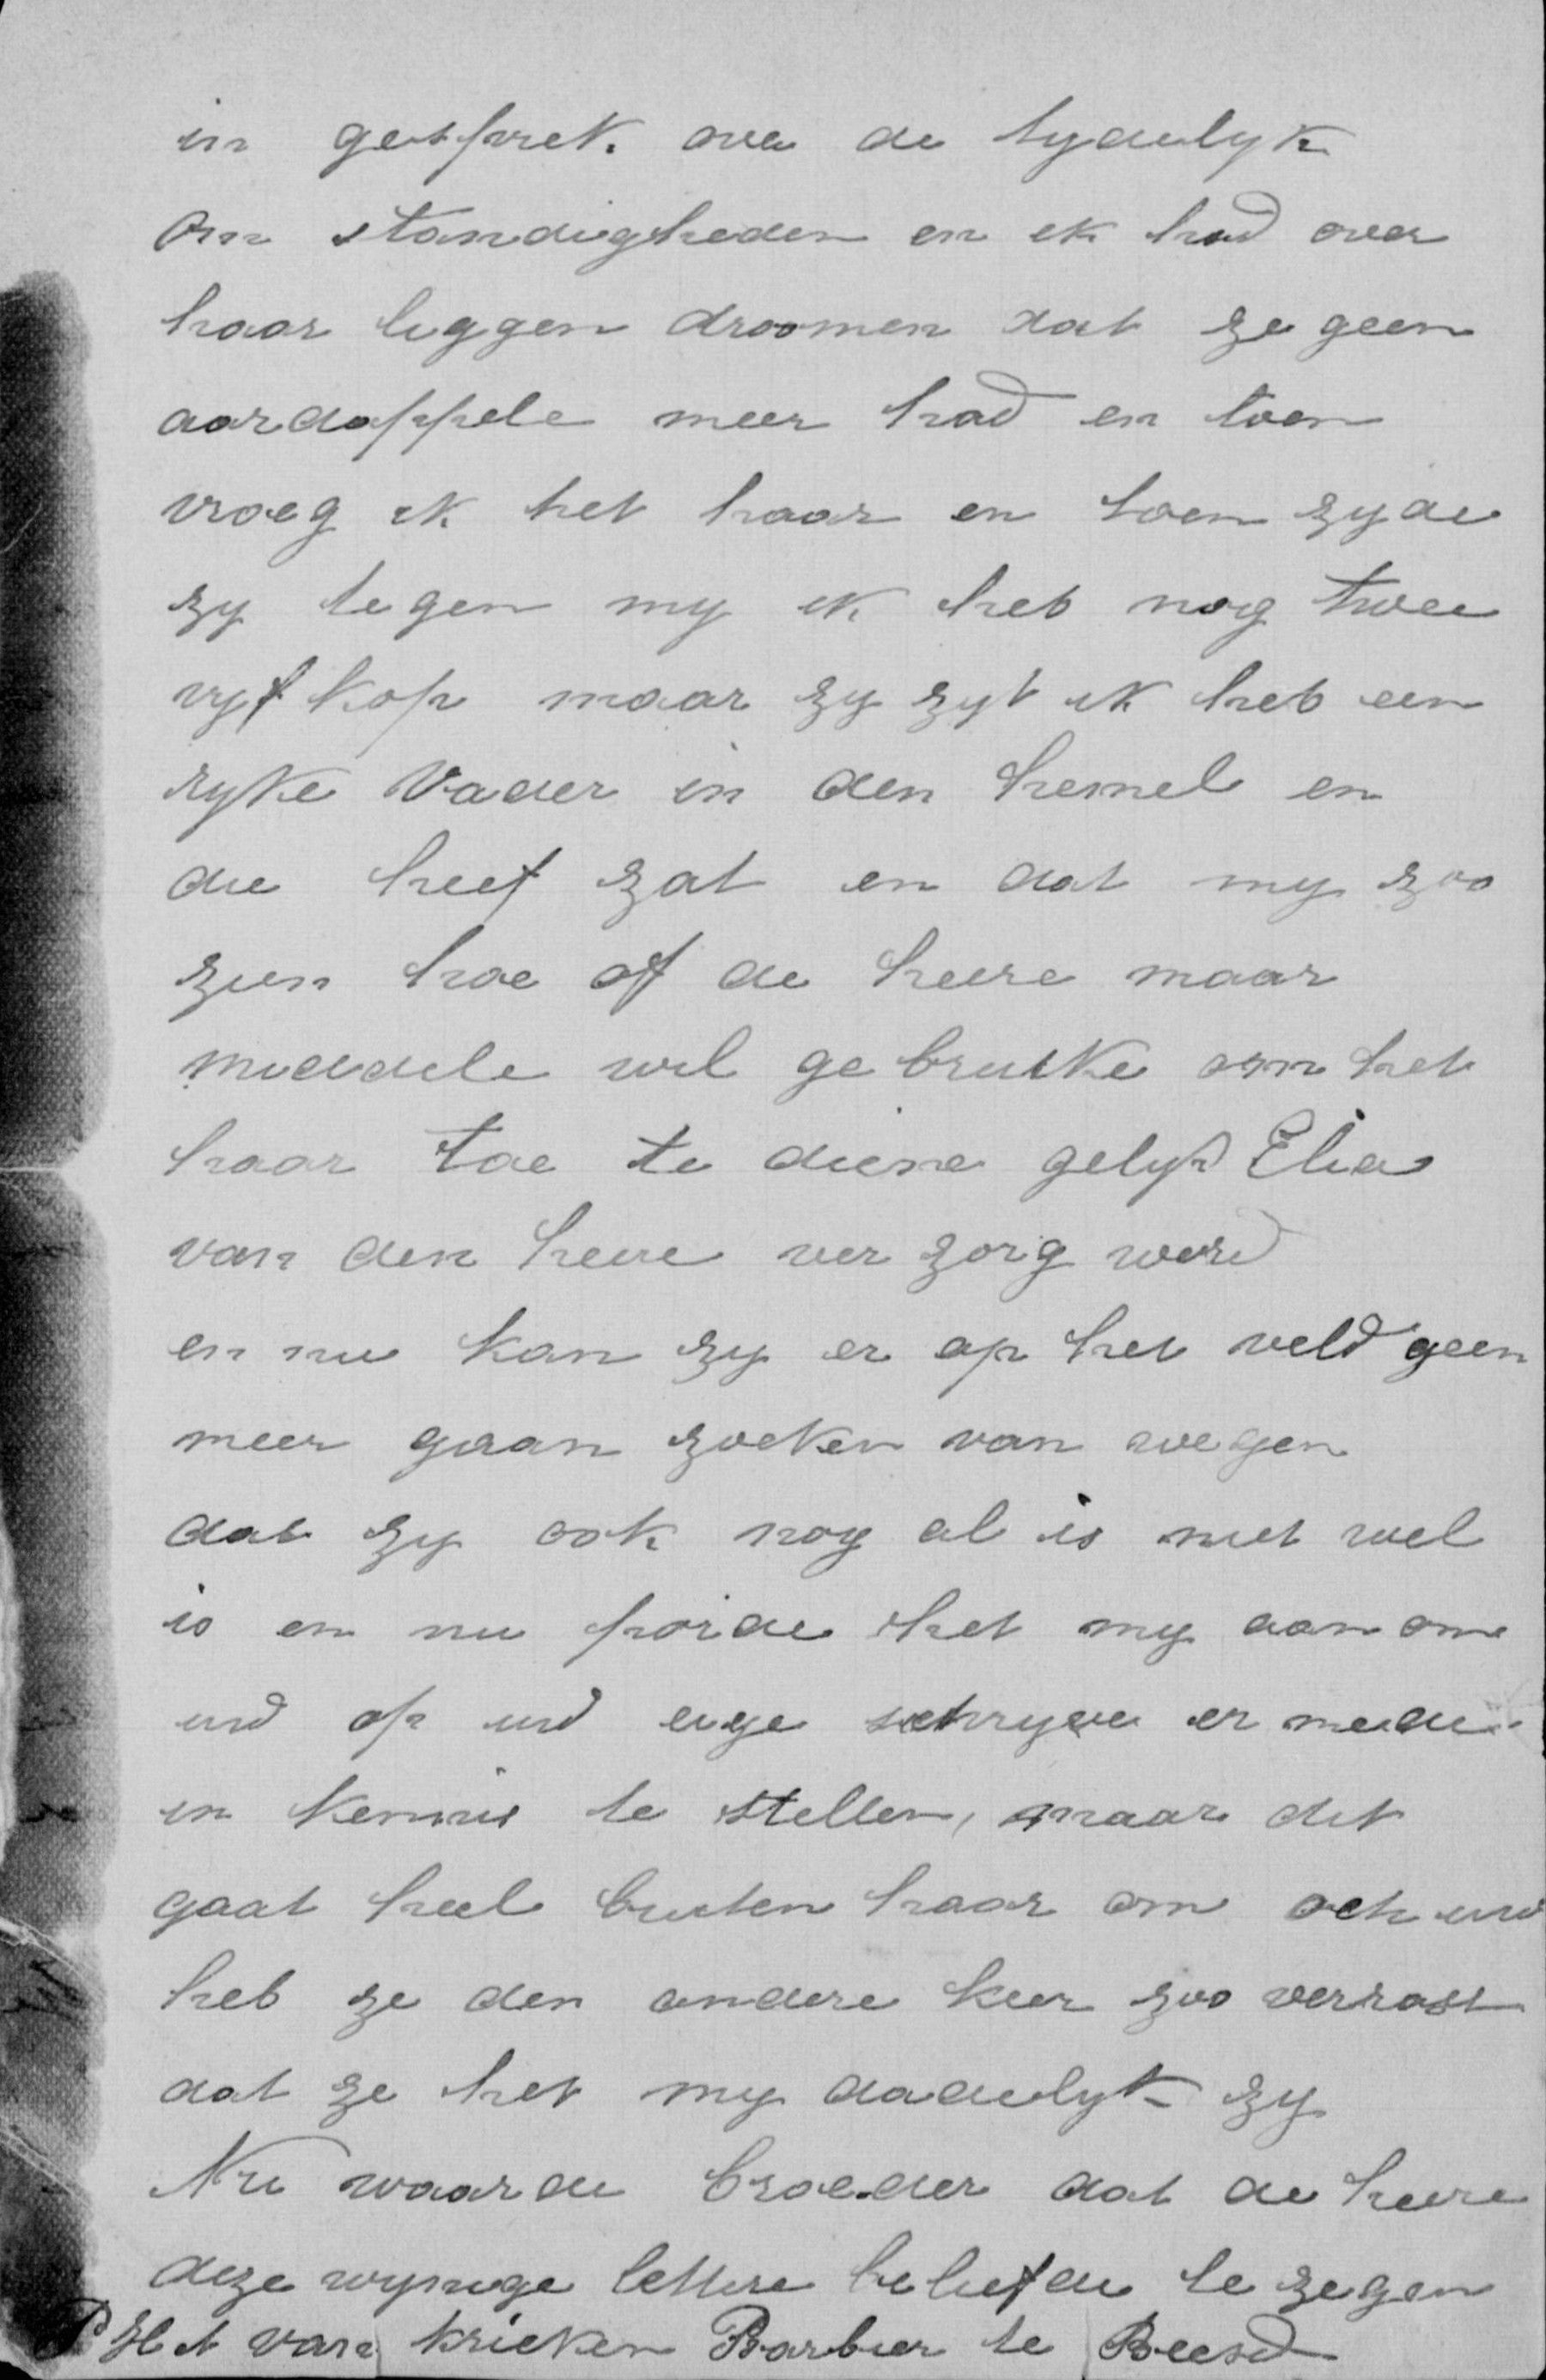 in gesprek. over de tydelyk
om standigheden en ik had over
haar liggen droomen dat ze geen
aardappele meer had en toen
vroeg ik het haar en toen zyde
zy tegen my ik heb nog twee
vyf kop maar zy zyt ik heb een
ryke Vader in den hemel en
die heef zat en dat my zoo
zien hoe of de heere maar
middele wil ge bruike om het
haar toe te diene gelyk Elia
van den heere ver zorg werd
en nu kan zy er op het veld geen
meer gaan zoeken van wegen
dat zy ook nog al is niet wel
is en nu porde het my aan om
uw op uw eige schryve er mede
in kennis te stellen, maar dit
gaat heel buiten haar om och uw
heb ze den andere keer zoo verrast
dat ze het my dadelyk zy
Nu waarde broeder dat de heere
deze wynige lettere beliefde te zegen
P H A van krieken Barbier te Beesd